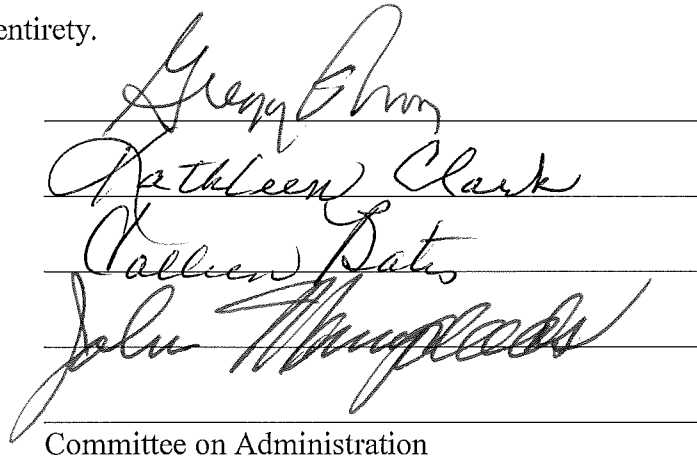 entirety.
Gregg
Kathleen Clark
Colleen Bates
John
Committee on Administration